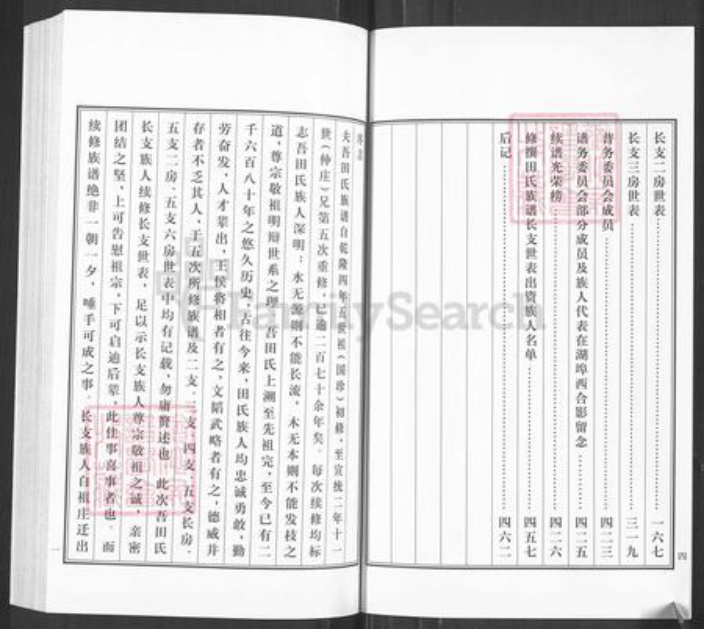 长支二房世表……一六七
长支三房世表……三一九
普务委员会成员……四二三
谱务委员会部分成员及族人代表在湖埠西合影留念……四二五
续谱光荣榜……四二六
修撰田氏族谱长支世表出资族人名单……四五七
后记……四六二
四
夫吾田氏族谱自乾隆四年五世祖(国珍)初修，至宣统二年十一
世(仲庄)兄第五次重修，已逾二百七十余年矣。每次续修均标
志吾田氏族人深明：水无源则不能长流，木无本则不能发枝之
道，尊宗敬祖明辩世系之理。吾田氏上溯至先祖完，至今已有二
千六百八十年之悠久历史，古往今来，田氏族人均忠诚勇敢，勤
劳奋发，人才辈出，王侯将相者有之，文韬武略者有之，德威并
存者不乏其人，于五次所修族谱及二支、三支、四支、五支长房、
五支二房、五支六房世表中均有记载，勿庸赘述也。此次吾田氏
长支族人续修长支世表，足以示长支族人尊宗敬祖之诚，亲密
团结之坚，上可告慰祖宗，下可启迪后辈，此仕事喜事者也。而
续修族谱绝非一朝一夕，唾手可成之事。长支族人自祖庄迁出
一
FamilySearch